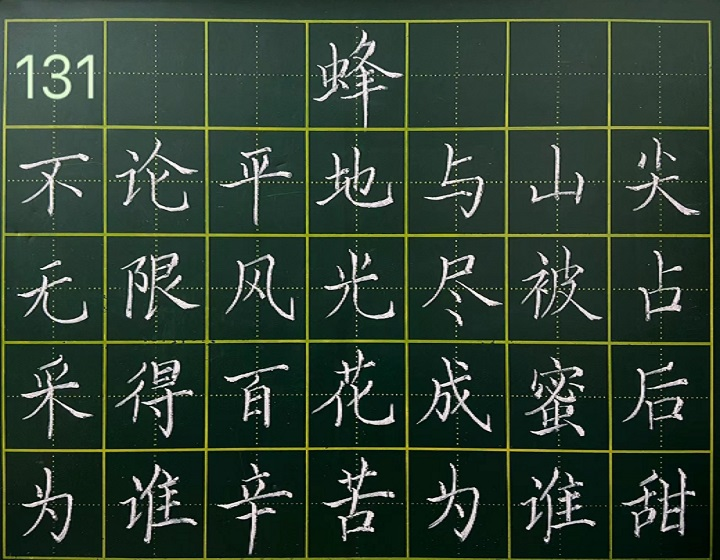 131
蜂
不论平地与山尖
无限风光尽被占
采得百花成蜜后
为谁辛苦为谁甜